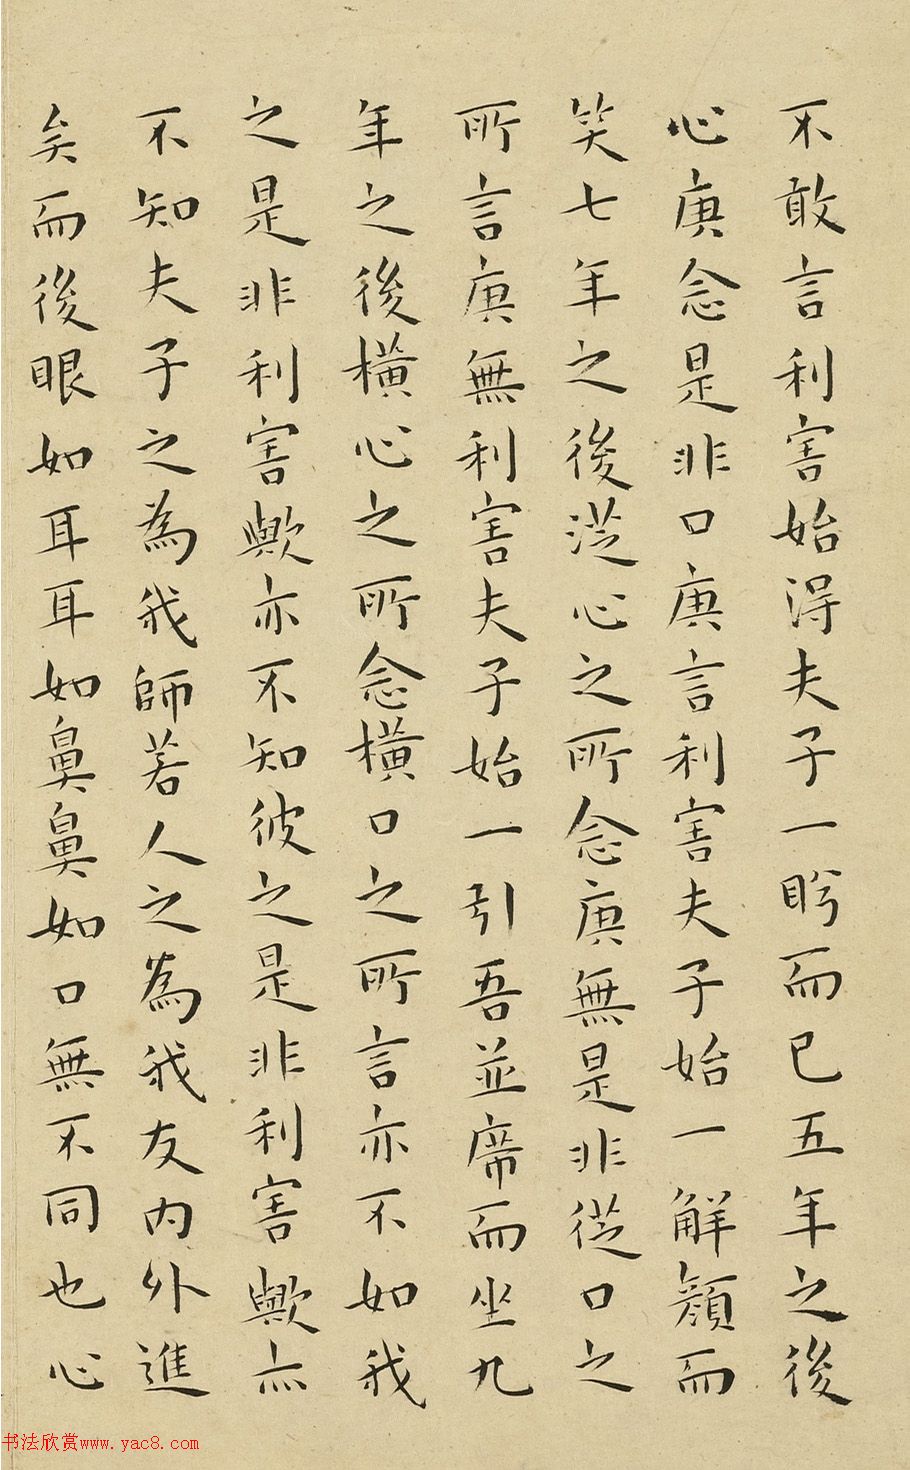 不敢言利害始得夫子一盻而已五年之後
心庚念是非口庚言利害夫子始一解顏而
笑七年之後從心之所念庚無是非從口之
所言庚無利害夫子始一引吾並席而坐九
年之後橫心之所念橫口之所言亦不如我
之是非利害歟亦不知彼之是非利害歟亦
不知夫子之為我師若人之為我友內外進
矣而後眼如耳耳如鼻鼻如口無不同也心
书法欣赏www.yac8.com